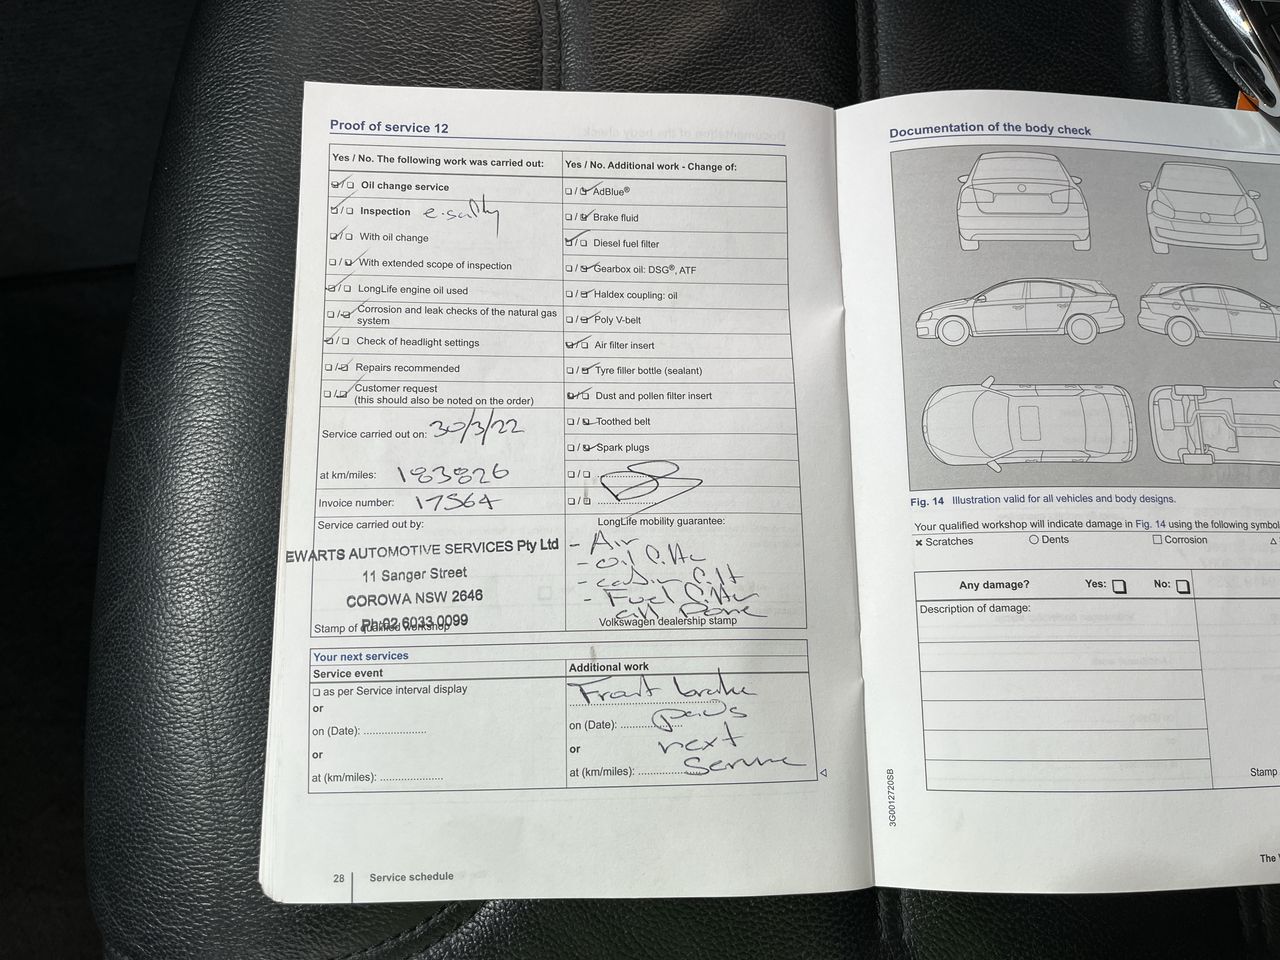 Proof of service 12
Yes / No. The following work was carried out:
☑/☐ Oil change service
☑/☐ Inspection e-safety
☑/☐ With oil change
☐/☑ With extended scope of inspection
☑/☐ LongLife engine oil used
☐/☑ Corrosion and leak checks of the natural gas
system
☑/☐ Check of headlight settings
☐/☑ Repairs recommended
☐/☑ Customer request
(this should also be noted on the order)
Service carried out on: 30/3/22
at km/miles: 183826
Invoice number: 17564
Service carried out by:
EWARTS AUTOMOTIVE SERVICES Pty Ltd
11 Sanger Street
COROWA NSW 2646
Ph:02 6033 0099
Stamp of qualified workshop
Yes / No. Additional work - Change of:
☐/☑ AdBlue®
☐/☑ Brake fluid
☑/☐ Diesel fuel filter
☐/☑ Gearbox oil: DSG®, ATF
☐/☑ Haldex coupling: oil
☐/☑ Poly V-belt
☑/☐ Air filter insert
☐/☑ Tyre filler bottle (sealant)
☑/☐ Dust and pollen filter insert
☐/☑ Toothed belt
☐/☑ Spark plugs
☐/☐
☐/☐
LongLife mobility guarantee:
- Air
- oil filter
- cabin filt
- Fuel filter
all Done
Volkswagen dealership stamp
Your next services
Service event
☐ as per Service interval display
or
on (Date): ....................
or
at (km/miles): ....................
Additional work
Front brake
on (Date): .................... pads
or next
at (km/miles): .................... Service
28 Service schedule
Documentation of the body check
Fig. 14 Illustration valid for all vehicles and body designs.
Your qualified workshop will indicate damage in Fig. 14 using the following symbol
× Scratches ○ Dents ☐ Corrosion △
Any damage? Yes: ☐ No: ☐
Description of damage:
Stamp
3G0012720SB
The